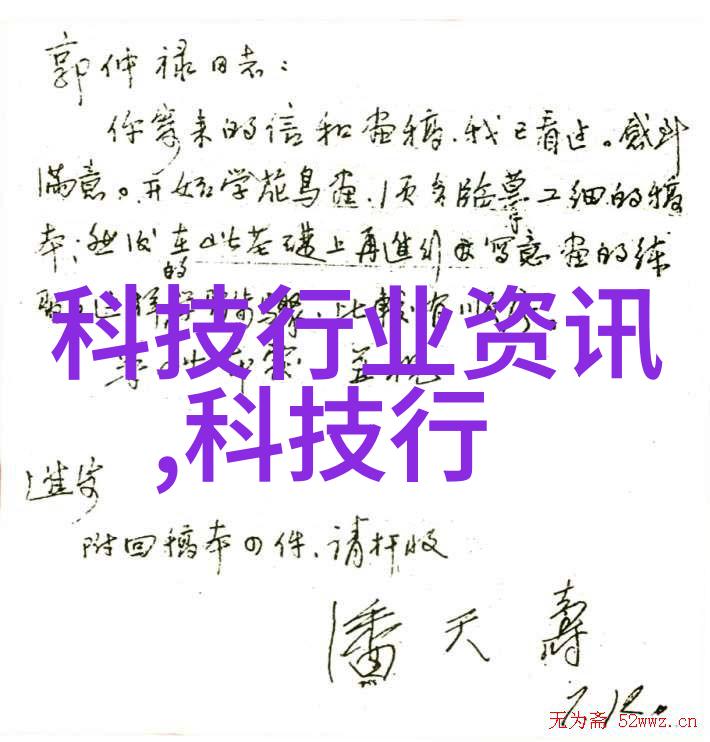 郭仲禄同志：
你寄来的信和画稿，我已看过。感到
满意。开始学花鸟画，须多临摹工细的稿
本；然后在此基础上再进行写意画的练
的
科技行业资讯
,科技行
进安
附回稿本四件，请查收
潘天寿
7.12。
无为斋 52wwz.cn